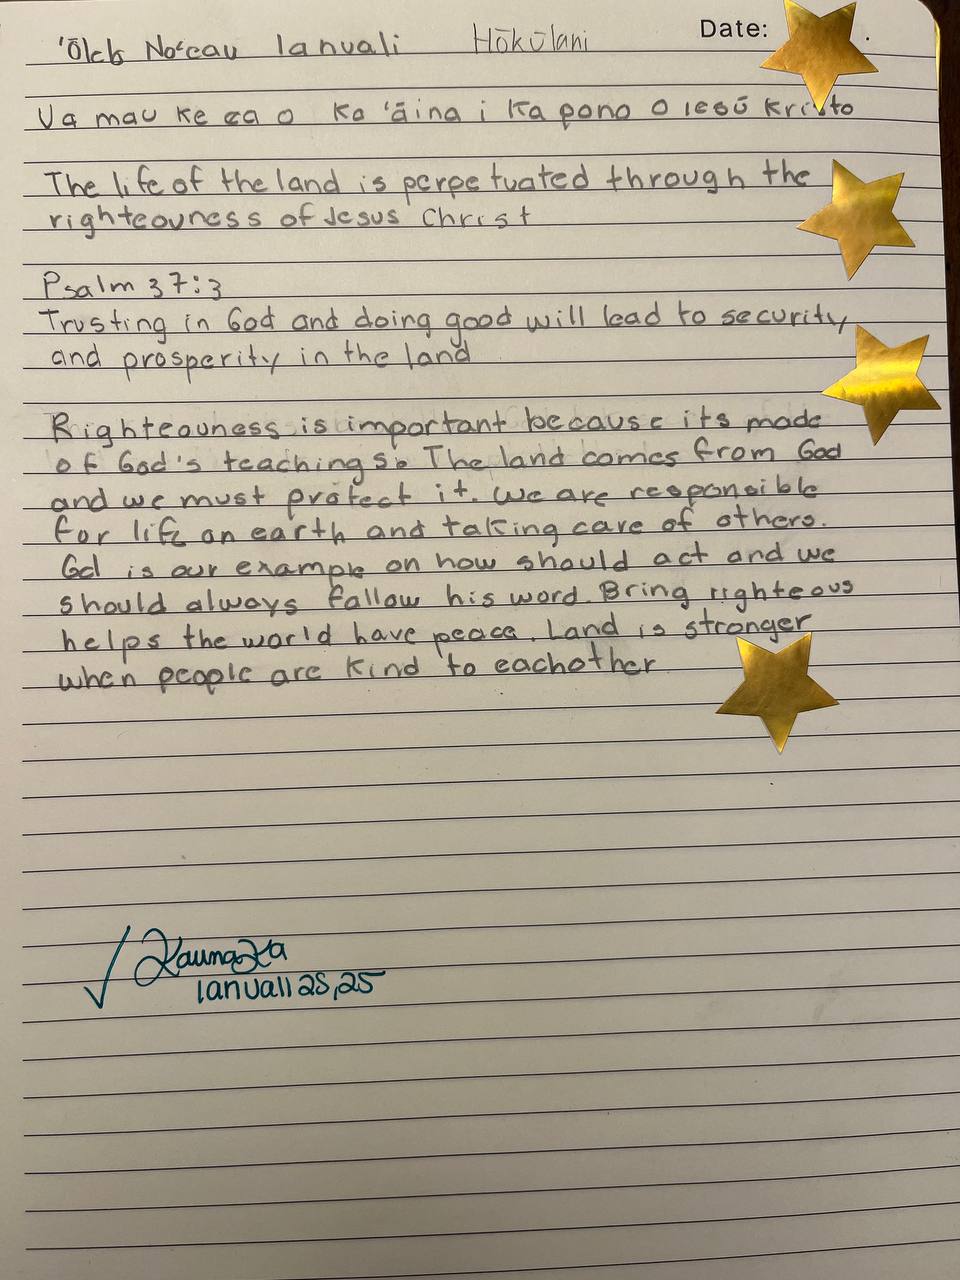 'Ōleb No'eau Ianuali Hōkūlani Date:
Ua mau ke ea o ka 'āina i ka pono o Iesū Kristo
The life of the land is perpetuated through the
righteouness of Jesus Christ
Psalm 37:3
Trusting in God and doing good will lead to security
and prosperity in the land
Righteouness is important because its made
of God's teachings. The land comes from God
and we must protect it. We are responsible
for life on earth and taking care of others.
God is our example on how should act and we
should always follow his word. Bring righteous
helps the world have peace. Land is stronger
when people are kind to eachother
Ianuali 28, 25